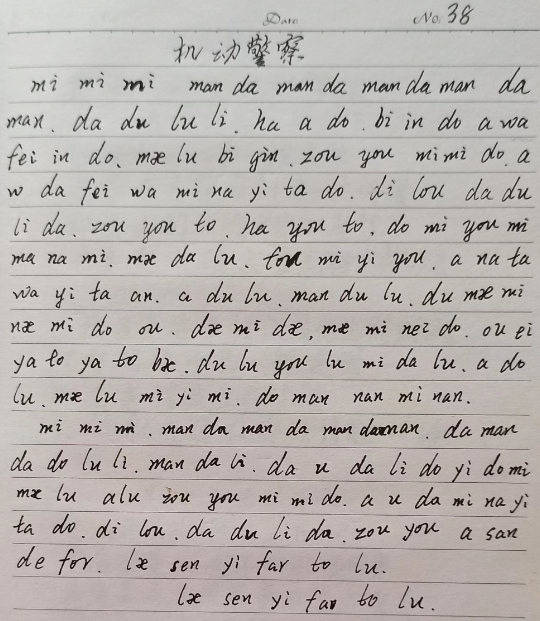 Date No. 38
机动警察
mi mi mi man da man da man da man da
man. da du lu li. ha a do. bi in do a wa
fei in do. mæ lu bi gin. zou you mi mi do. a
w da fei wa mi na yi ta do. di lou da du
li da. zou you to. ha you to. do mi you mi
ma na mi. mæ da lu. fou mi yi you. a na ta
wa yi ta an. a du lu. man du lu. du mæ mi
næ mi do ou. dæ mi dæ, mæ mi nei do. ou ei
ya to ya to bæ. du lu you lu mi da lu. a do
lu. mæ lu mi yi mi. do man nan mi nan.
mi mi mi. man da man da man da man. da man
da do lu li. man da li. da u da li do yi do mi
mæ lu alu zou you mi mi do. a u da mi na yi
ta do. di lou. da du li da. zou you a san
de for. læ sen yi far to lu.
læ sen yi far to lu.